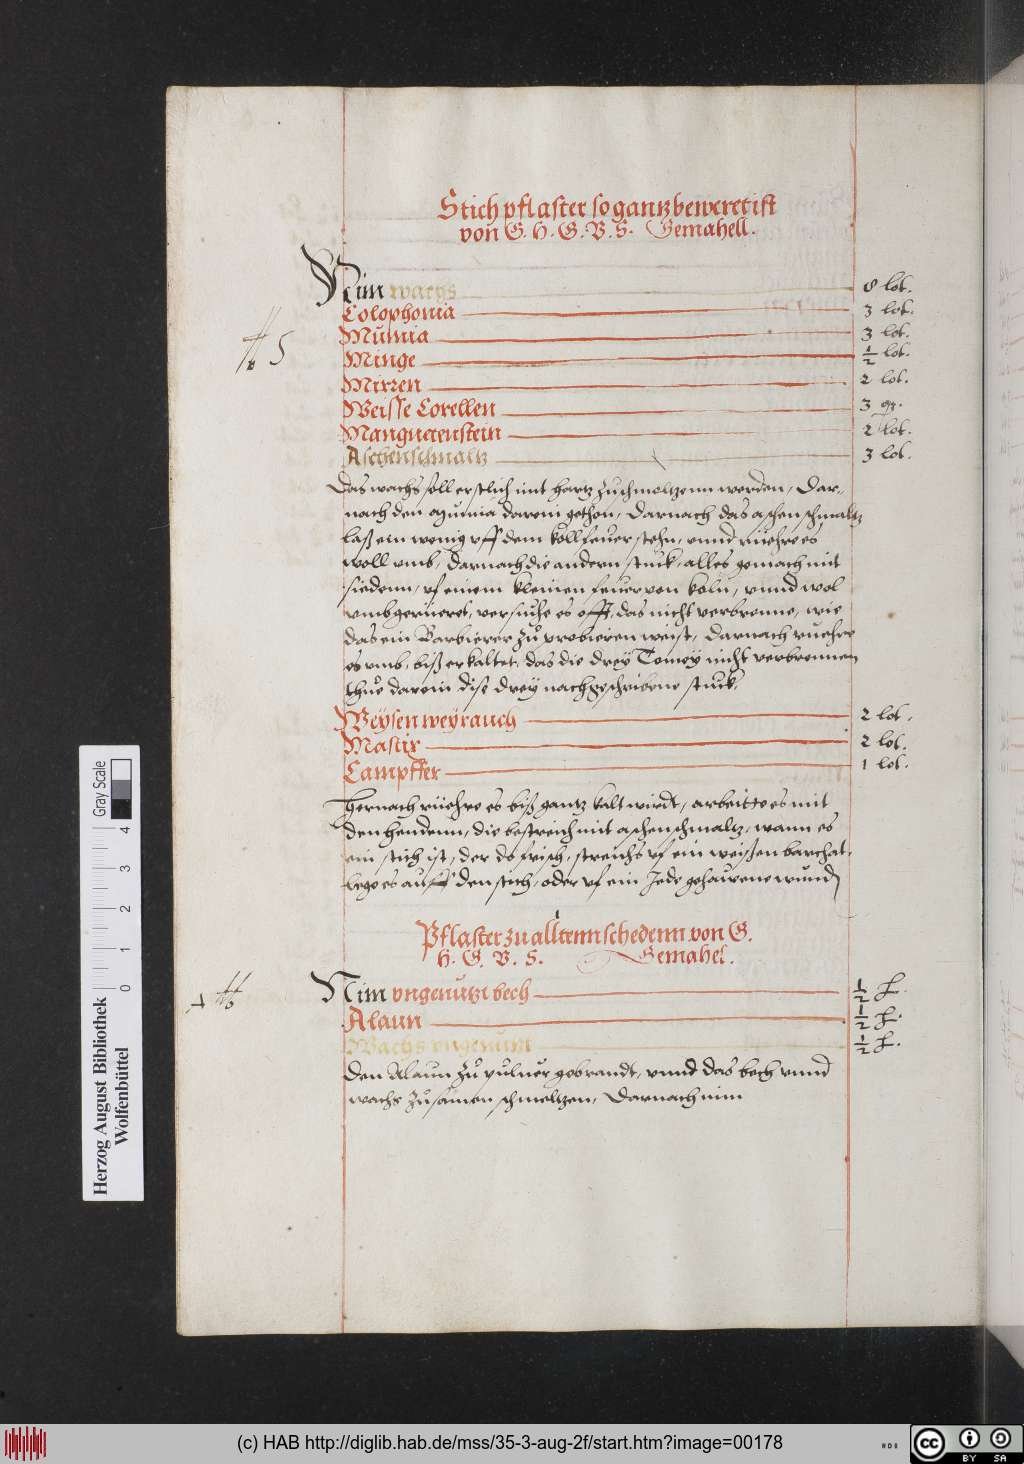 Stich pflaster so gantz beweret ist
von G. H. G. V. S. Gemahell.
Nim wachs 8 lot.
Colophonia 3 lot.
Mumia 3 lot.
Minge ½ lot.
Mirren 2 lot.
Weisse Corellen 3 qr.
Mangnetenstein 2 lot.
Aschenschmaltz 3 lot.
5
Das wachs soll erstlich mit hartz zuschmeltzenn werden, Dar-
nach den Mumia darein gethon, Darnach das aschen schmaltz
laß ein wenig vff dem kollfeuer stehn, vnnd rüehre es
woll vmb, Darnach die andern stuck, alles gemach mit
siedenn, vf einem kleinen feuer von koln, vnnd wol
vmbgerüeret, versuche es offt, das nicht verbrenne, wie
das ein Barbierer zů probieren weist, Darnach ruehre
es vmb, biß erkaltet, das die drey nicht verbrennen
thuo darein dise drey nachgeschribene stuck,
Weysen weyrauch 2 lot.
Mastix 2 lot.
Campffer 1 lot.
Hernach rüehre es biß gantz kalt wirdt, arbeitte es mit
den hendenn, die bestreich mit aschenschmaltz, wann es
ein stich ist, der do frisch, streichs vf ein weißen barchat,
lege es auff den stich, oder vf ein Jede gehauwene wund
Pflaster zu alltenn schedenn von G.
H. G. V. S. Gemahel.
Nim vngenutzt bech ½ ℔.
Alaun ½ ℔.
Wachs vngenutzt ½ ℔.
Den Alaun zů puluer gebrandt, vnnd das bech vnnd
wachs zůsamen schmeltzen, Darnach nim
Herzog August Bibliothek
Wolfenbüttel
0 1 2 3 4
Gray Scale
(c) HAB http://diglib.hab.de/mss/35-3-aug-2f/start.htm?image=00178
cc BY SA